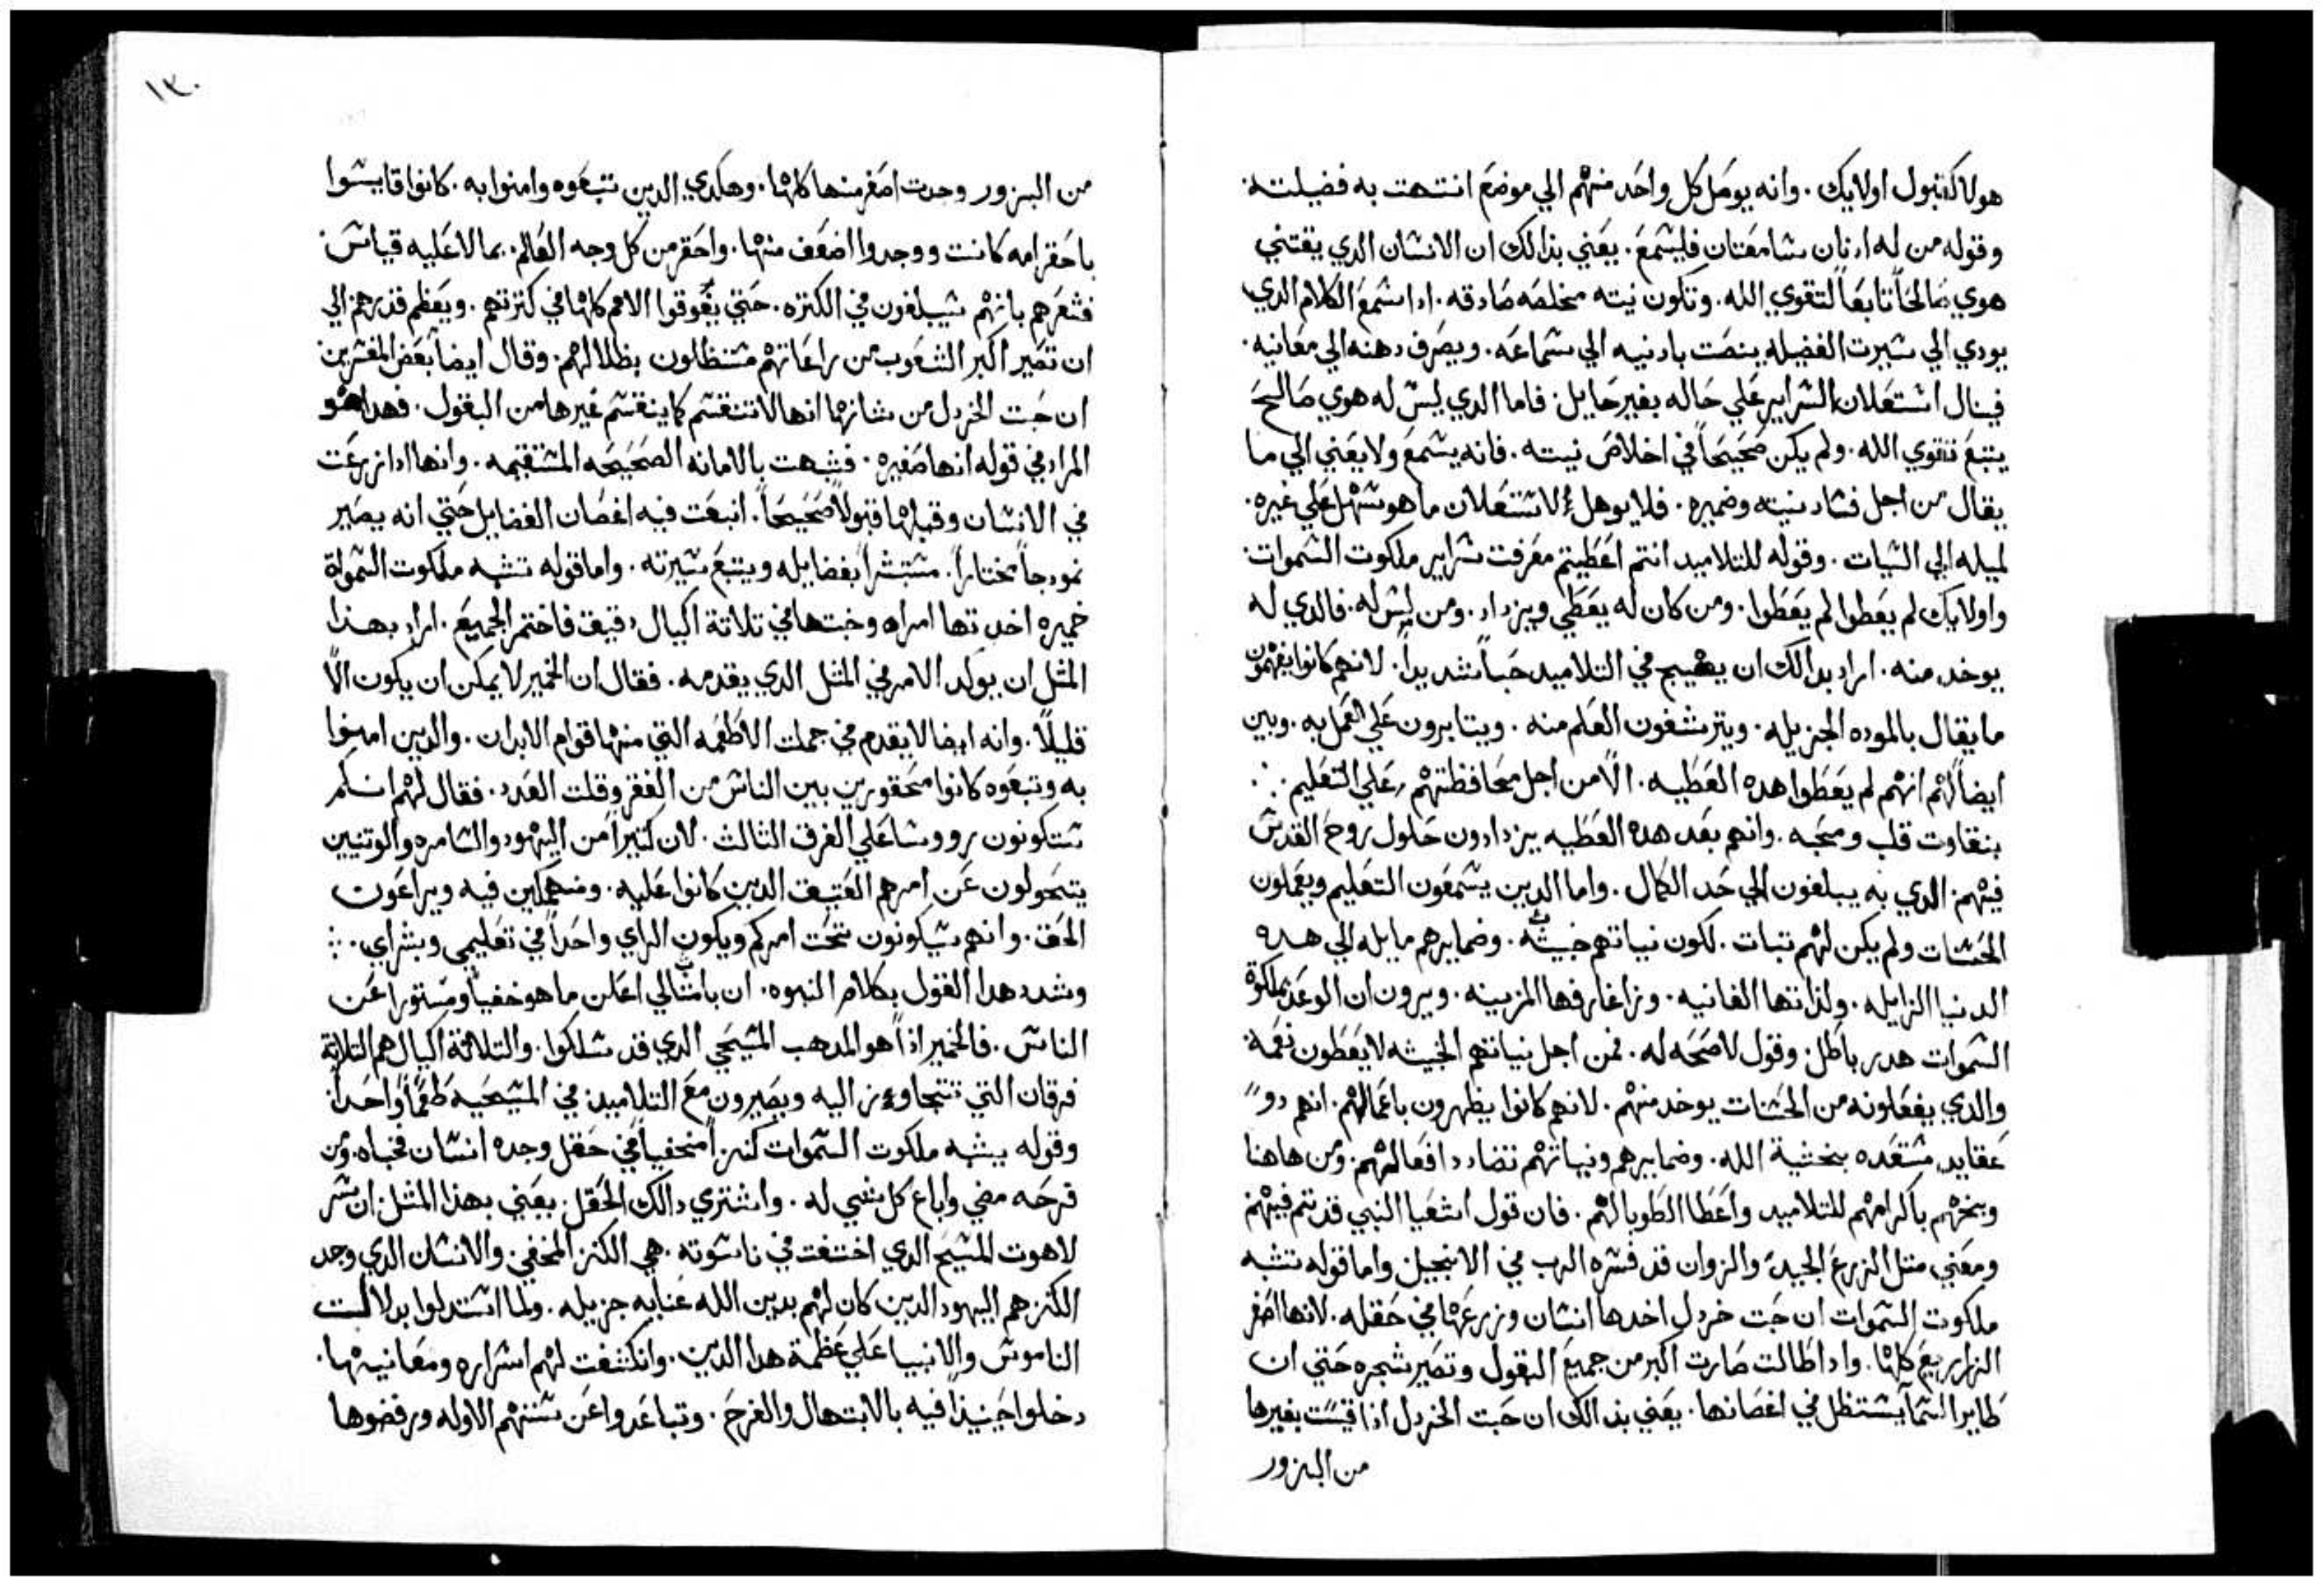 هولا كقبول اولايك. وانه يوصل كل واحد منهم الي موضع انتهت به فضيلته.
وقوله من له ادنان سامعتان فليسمع. يعني بذالك ان الانسان الدي يقتني
هوي صالحاً تابعاً لتقوي الله. وتكون نيته مخلصه صادقه. اذا سمع الكلام الدي
يودي الي سيرت الفضيله ينصت بادنيه الي سماعه. ويصرف دهنه الي معانيه.
فينال استعلان السراير علي حاله بغير حايل. فاما الدي ليس له هوي صالح
يتبع تقوي الله. ولم يكن صحيحاً في اخلاص نيته. فانه يسمع ولا يعني الي ما
يقال من اجل فساد نيته وضميره. فلا يوهل لاستعلان ما هو سهل علي غيره.
لميله الي السيات. وقوله للتلاميد انتم اعطيتم معرفت سراير ملكوت السموات
واولايك لم يعطوا لم يعطوا. ومن كان له يعطي ويزداد. ومن ليس له. فالدي له
يوخد منه. اراد بدالك ان يهيج في التلاميد حباً شديداً. لانهم كانوا يفهمون
ما يقال بالموده الجزيله. ويترشفون العلم منه. ويتابرون علي العمل به. وبين
ايضاً لهم انهم لم يعطوا هده العطيه. الا من اجل محافظتهم علي التعليم
بنقاوت قلب ومحبه. وانهم بعد هده العطيه يزدادون حلول روح القدس
فيهم. الدي به يبلغون الي حد الكمال. واما الدين يسمعون التعليم ويعملون
الحسنات ولم يكن لهم تبات. لكون نياتهم خبيثه. وضمايرهم مايله الي هده
الدنيا الزايله. ولذاتها الفانيه. وزاغارفها المزينه. ويرون ان الوعد بملكوة
السموات هدر باطل. وقول لا صحه له. فمن اجل نياتهم الخبيثه لا يعطون نعمة.
والدي يفعلونه من الحسنات يوخد منهم. لانهم كانوا يظهرون باعمالهم. انهم دو
عقايد مستعده بخشية الله. وضمايرهم ونياتهم تضادد افعالهم. ومن هاهنا
وبخهم باكرامهم للتلاميد واعطا الطوبا لهم. فان قول اشعيا النبي قد تم فيهم
ومعني متل الزرع الجيد والزوان قد فسره الرب في الانجيل واما قوله تشبه
ملكوت السموات ان حبت خردل اخدها انسان وزرعها في حقله. لانها اصغر
الزراريع كلها. وادا طالت صارت اكبر من جميع البقول وتصير شجره حتي ان
طاير السما يستظل في اغصانها. يعني بدالك ان حبت الخردل اذا قيست بغيرها
من البزور
١٣٠
من البزور وجدت اصغر منها كلها. وهكدي الدين تبعوه وامنوا به. كانوا قايسوا
باحقر امه كانت ووجدوا اضعف منها. واحقر من كل وجه العالم. بما لا عليه قياس.
فشعرهم بانهم سيبلغون في الكتره. حتي يفوقوا الامم كلها في كترتهم. ويعظم قدرهم الي
ان تصير اكبر الشعوب من راعاتهم مستظلون بظلالهم. وقال ايضاً بعض المفسرين
ان حبت الخردل من شانها انها لا تنقسم كما ينقسم غيرها من البقول. فهدا هو
المراد في قوله انها صغيره. فشبهت بالامانه الصحيحه المستقيمه. وانها ادا زرعت
في الانسان وقبلها قبولاً صحيحاً. انبعت فيه اغصان الفضايل حتي انه يصير
نمودجاً مختاراً. مستبشراً بفضايله ويتبع سيرته. واما قوله تشبه ملكوت السمواة
خميره اخدتها امراه وخبتها في تلاتة اكيال دقيق فاختمر الجميع. اراد بهذا
المثل ان يوكد الامر في المثل الدي يقدمه. فقال ان الخمير لا يمكن ان يكون الا
قليلاً. وانه ايضا لا يقدم في جملت الاطعمه التي منها قوام الابدان. والدين امنوا
به وتبعوه كانوا محقورين بين الناس من الفقر وقلت العدد. فقال لهم انكم
ستكونون رووسا علي الفرق الثالث. لان كتيراً من اليهود والسامره والوتنيين
يتحولون عن امرهم العتيق الدين كانوا عليه. ومنهمكين فيه ويراعون
الحق. وانهم سيكونون تحت امركم ويكون الراي واحداً في تعليمي وبشراي.
وشدد هدا القول بكلام النبوه. ان بامثالي اعلن ما هو خفياً ومستورا عن
الناس. فالخمير اذاً هو المدهب المسيحي الدي قد سلكوا. والتلاثة اكيال هم التلاتة
فرقان التي تتجاوز اليه ويصيرون مع التلاميذ في المسيحيه طعماً واحداً.
وقوله يشبه ملكوت السموات كنزاً مخفياً في حقل وجده انسان فخباه. ومن
فرحه مضي واباع كل شي له. واشتري دالك الحقل. يعني بهذا المثل ان سر
لاهوت المسيح الدي اختفت في ناسوته. هي الكنز المخفي. والانسان الدي وجد
الكنز هم اليهود الدين كان لهم بدين الله عنايه جزيله. ولما استدلوا بدلالت
الناموس والانبيا علي عظمة هدا الدين. وانكشفت لهم اسراره ومعانيها.
دخلوا حينيذاً فيه بالابتهال والفرح. وتباعدوا عن سنتهم الاوله ورفضوها